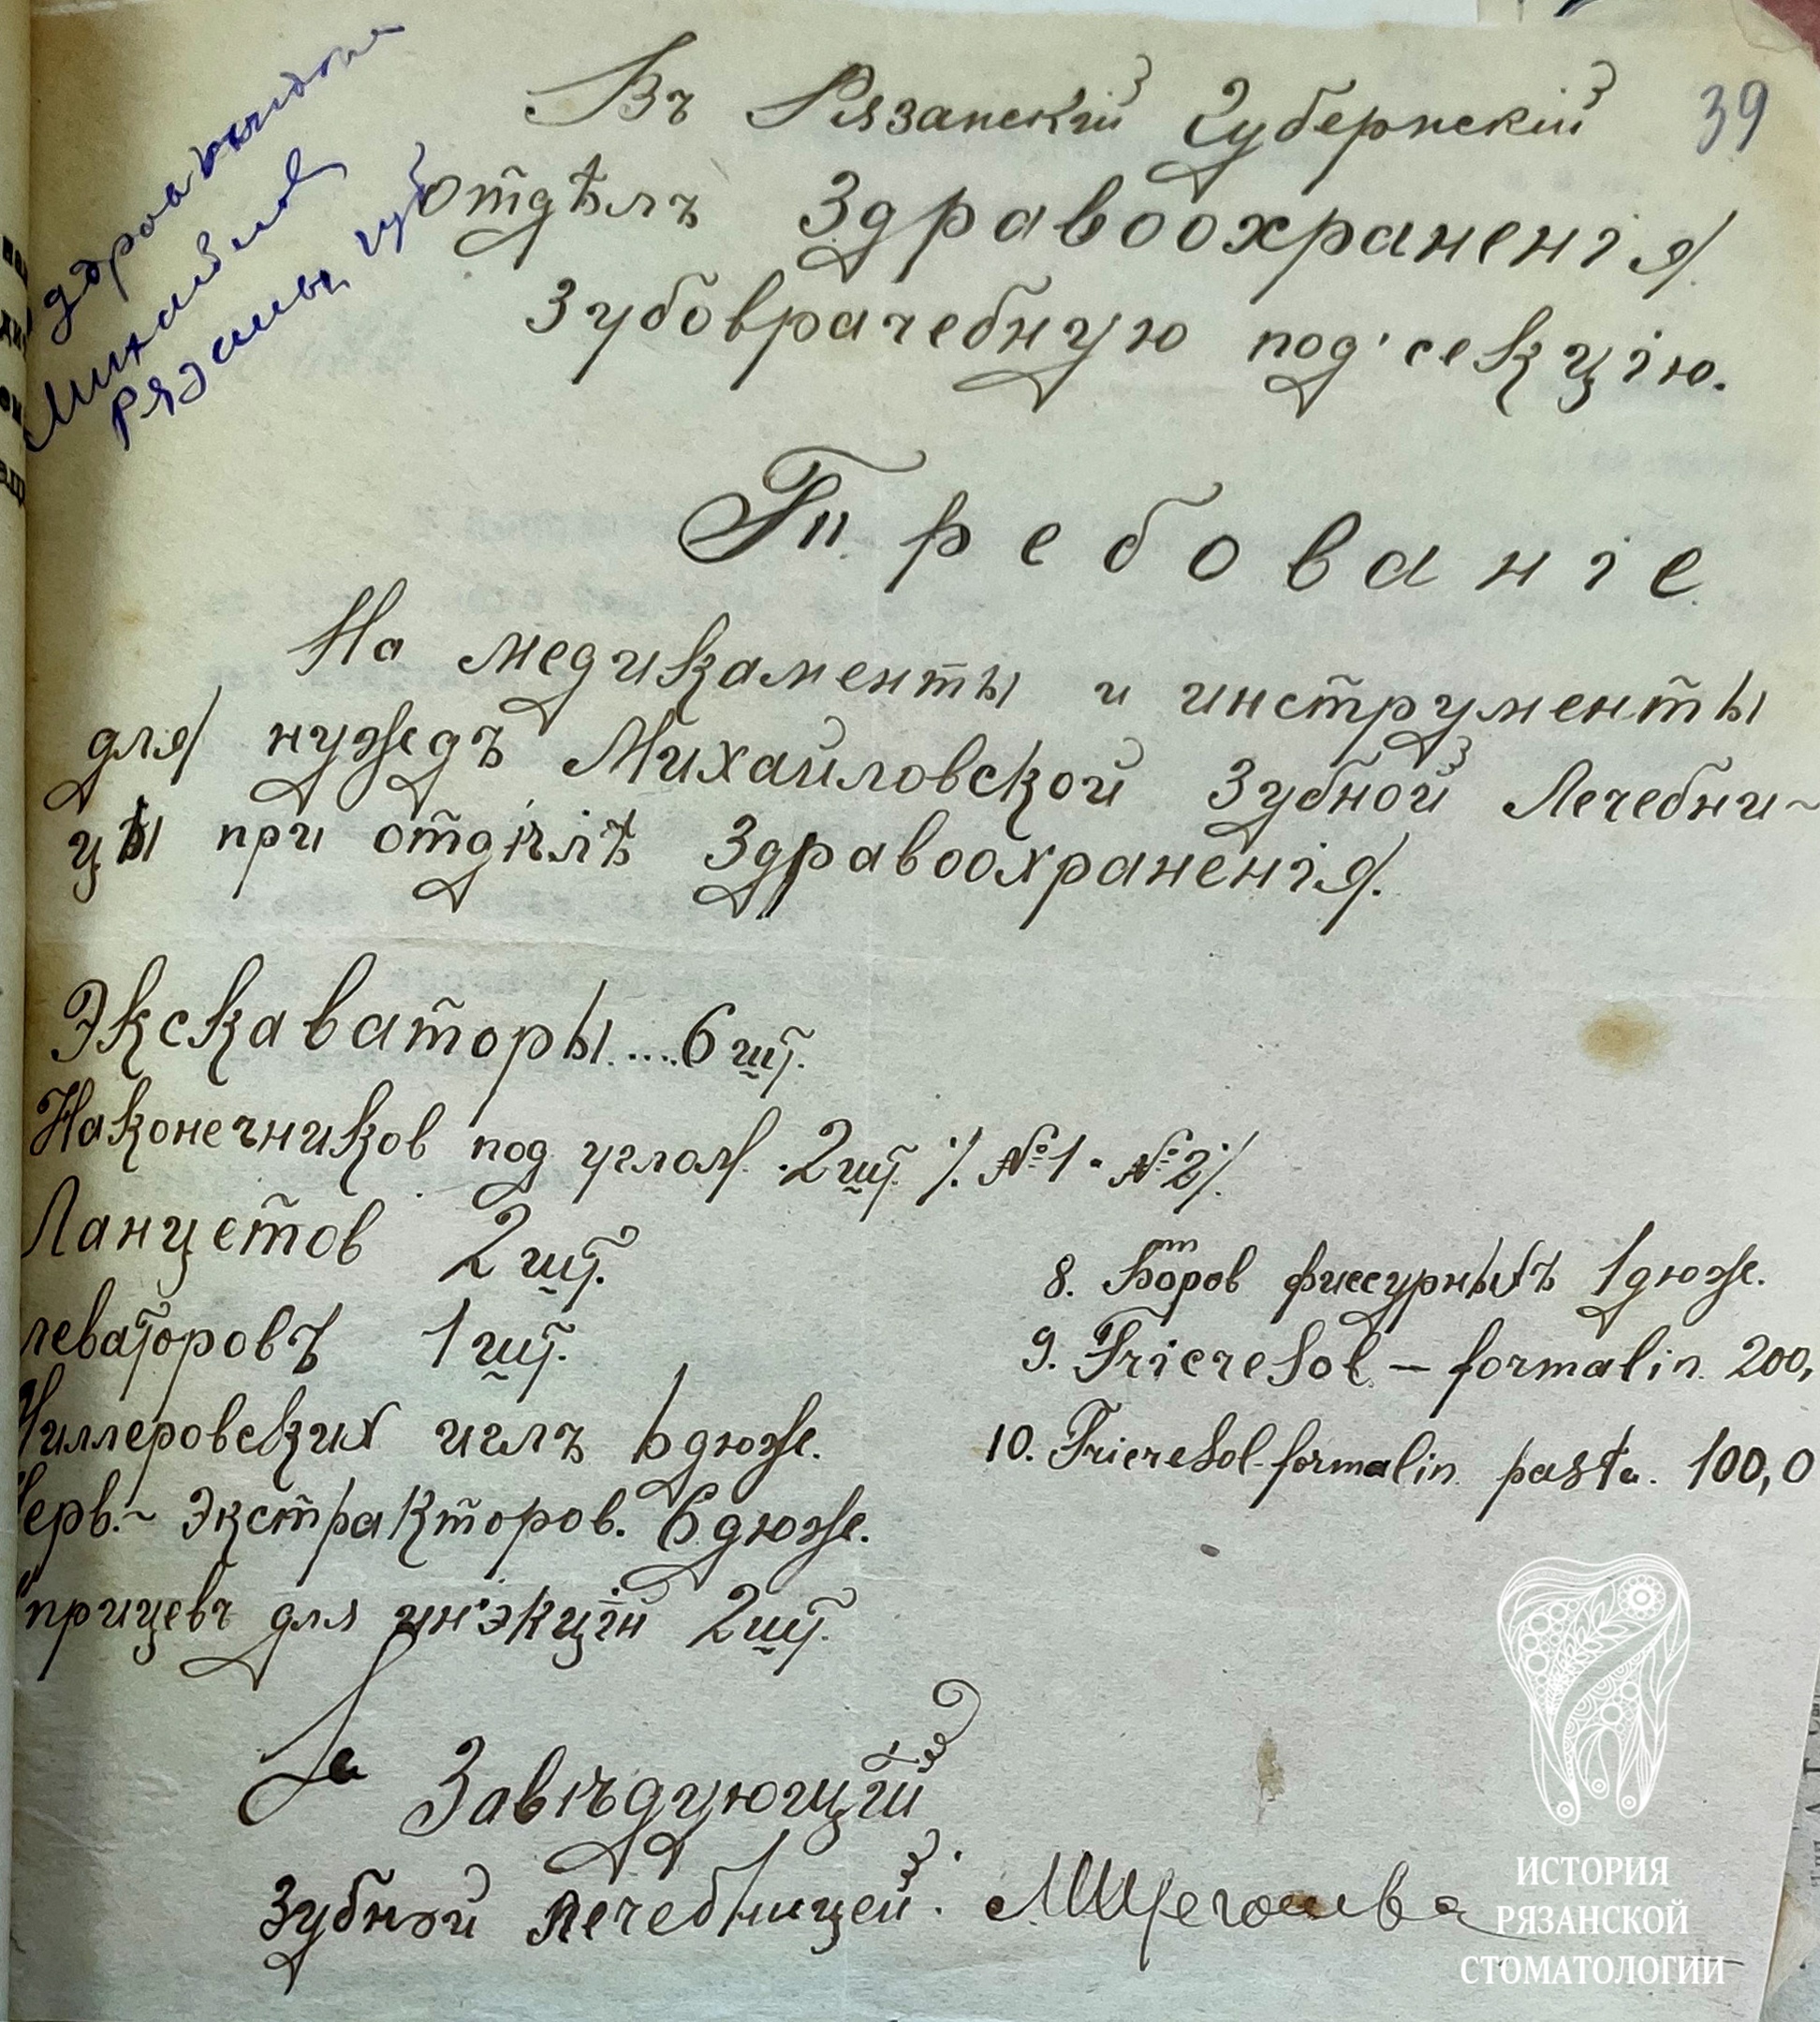 39
Въ Рязанский Губернскій
отдѣлъ Здравоохраненія
Зубоврачебную под'секцію.
здравоохр
Михайлов
Рязаны губ
Требованіе
На медикаменты и инструменты
для нуждъ Михайловской Зубной Лечебни-
цы при отдѣлѣ Здравоохраненія.
Экскаваторы....6 шт.
Наконечников под углом. 2 шт. ٪ №1 - №2 ٪
Ланцетов 2 шт.
леваторовъ 1 шт.
иллеровских иглъ 6 дюж.
ерв.- экстракторов. 6 дюж.
прицевъ для ин'экцій 2 шт.
8. Боров фиссурныхъ 1 дюж.
9. Tricresol - formalin. 200,
10. Tricresol-formalin. pasta. 100,0
За Завѣдующій
Зубной лечебницей. МЩеголева
ИСТОРИЯ
РЯЗАНСКОЙ
СТОМАТОЛОГИИ